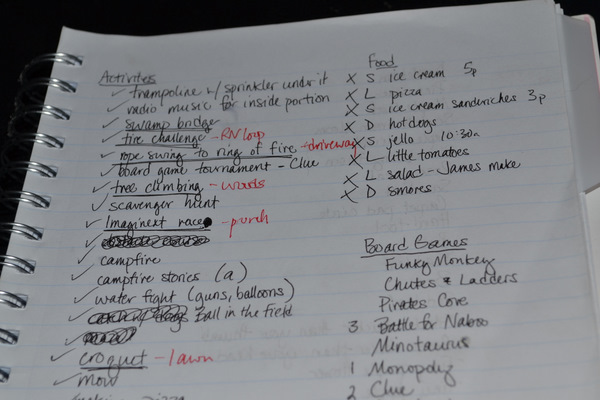 Activities
trampoline w/ sprinkler under it
radio music for inside portion
swamp bridge
tire challenge - RV loop
rope swing to ring of fire - driveway
board game tournament - Clue
tree climbing - woods
scavenger hunt
Imaginext race - porch
campfire
campfire stories (a)
water fight (guns, balloons)
Ball in the field
croquet - lawn
mow
pizza
Food
X S ice cream 5p
X L pizza
X S ice cream sandwiches 3p
X D hotdogs
X S jello 10:30a
X L little tomatoes
X L salad - James make
X D smores
Board Games
Funky Monkey
Chutes & Ladders
Pirates Cove
3 Battle for Naboo
Minotaurus
1 Monopoly
2 Clue